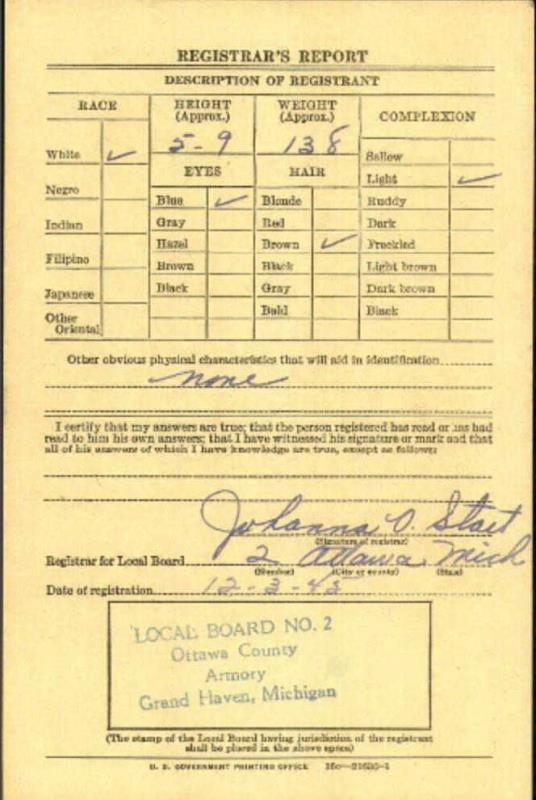 REGISTRAR'S REPORT
DESCRIPTION OF REGISTRANT
RACE
HEIGHT
(Approx.)
WEIGHT
(Approx.)
COMPLEXION
5-9
138
White ✓
EYES
HAIR
Sallow
Light ✓
Negro
Blue ✓
Blonde
Ruddy
Indian
Gray
Red
Dark
Hazel
Brown ✓
Freckled
Filipino
Brown
Black
Light brown
Japanese
Black
Gray
Dark brown
Other
Oriental
Bald
Black
Other obvious physical characteristics that will aid in identification
none
I certify that my answers are true; that the person registered has read or has had
read to him his own answers; that I have witnessed his signature or mark and that
all of his answers of which I have knowledge are true, except as follows:
Johanna O.
(Signature of registrar)
Registrar for Local Board 2 Ottawa Mich
(Number) (City or county) (State)
Date of registration 12-3-43
LOCAL BOARD NO. 2
Ottawa County
Armory
Grand Haven, Michigan
(The stamp of the Local Board having jurisdiction of the registrant
shall be placed in the above space)
U. S. GOVERNMENT PRINTING OFFICE